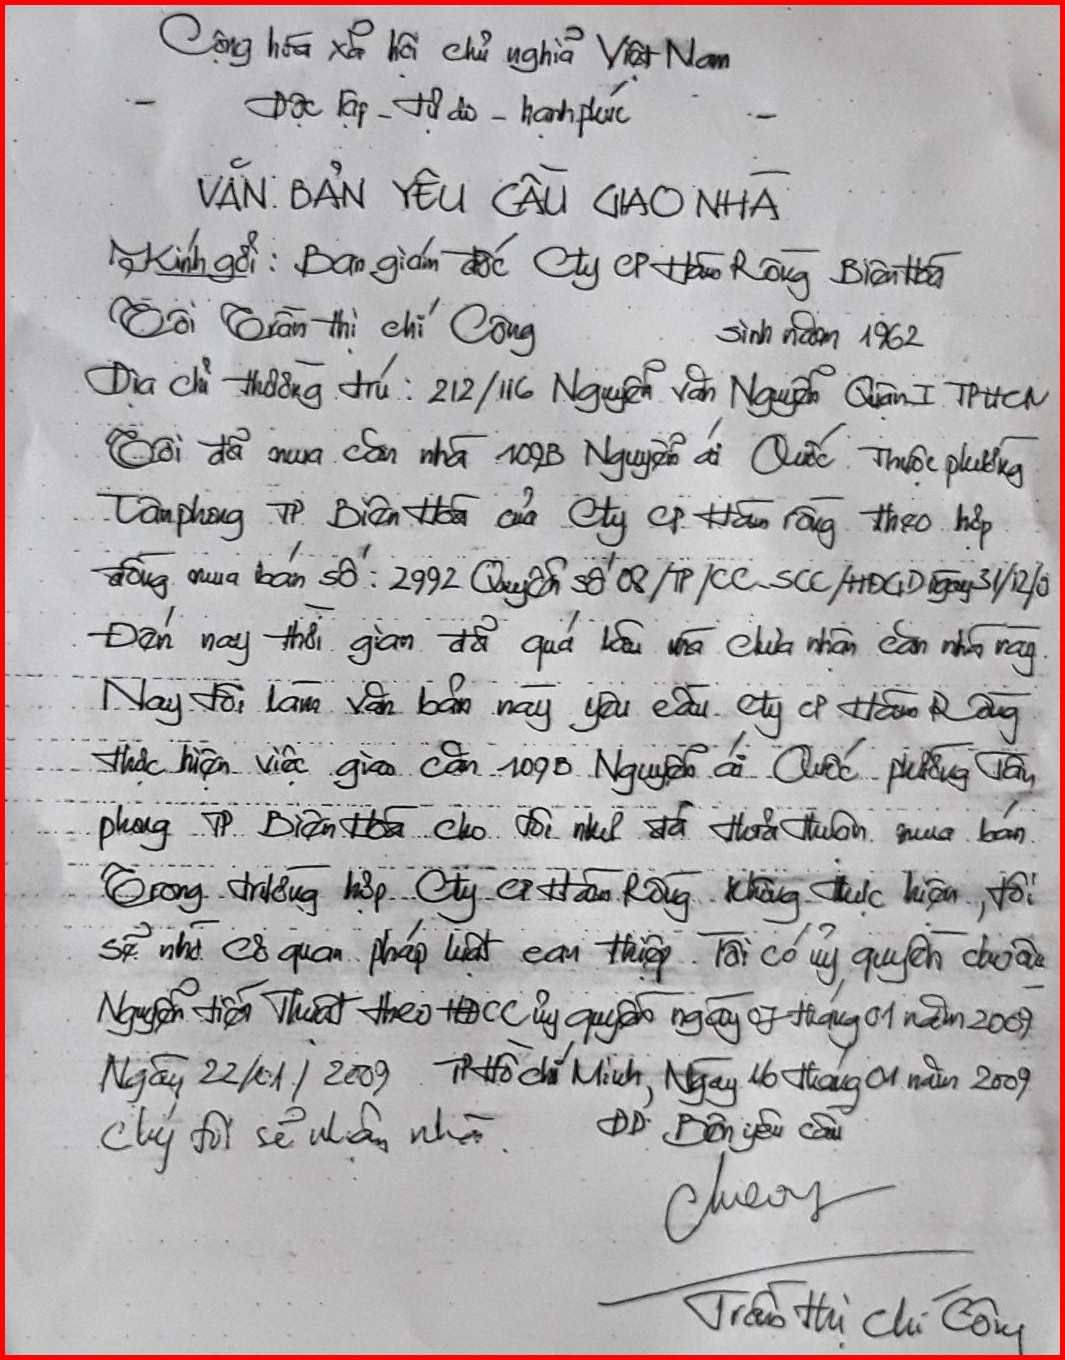 Cộng hòa xã hội chủ nghĩa Việt Nam
- Độc lập - Tự do - hạnh phúc -
VĂN BẢN YÊU CẦU GIAO NHÀ
Kính gởi: Ban giám đốc Cty CP Hàm Rồng Biên Hòa
Tôi Trần thị chí Công sinh năm 1962
Địa chỉ thường trú: 212/116 Nguyễn văn Nguyễn Quận I TPHCM
Tôi đã mua căn nhà 109B Nguyễn ái Quốc Thuộc phường
Tân phong TP Biên Hòa của Cty CP Hàm rồng theo hợp
đồng mua bán số: 2992 Quyển số 08/TP/CC-SCC/HĐGD ngày 31/12/0
Đến nay thời gian đã quá lâu mà chưa nhận căn nhà này.
Nay tôi làm văn bản này yêu cầu Cty CP Hàm Rồng
thực hiện việc giao căn 109B Nguyễn ái Quốc phường Tân
phong TP Biên Hòa cho tôi như đã thỏa thuận mua bán.
Trong trường hợp Cty CP Hàm Rồng không thực hiện, tôi
sẽ nhờ cơ quan pháp luật can thiệp. Tôi có ủy quyền cho
Nguyễn tiến Thuật theo HĐCC ủy quyền ngày 07 tháng 01 năm 2009
Ngày 22/01/2009 TP Hồ chí Minh, Ngày 16 tháng 01 năm 2009
tôi sẽ nhận nhà. ĐD. Bên yêu cầu
Trần thị chí Công